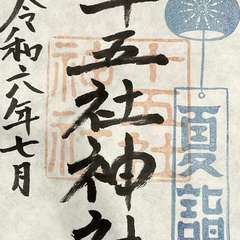 夏詣
十五社神社
令和六年七月